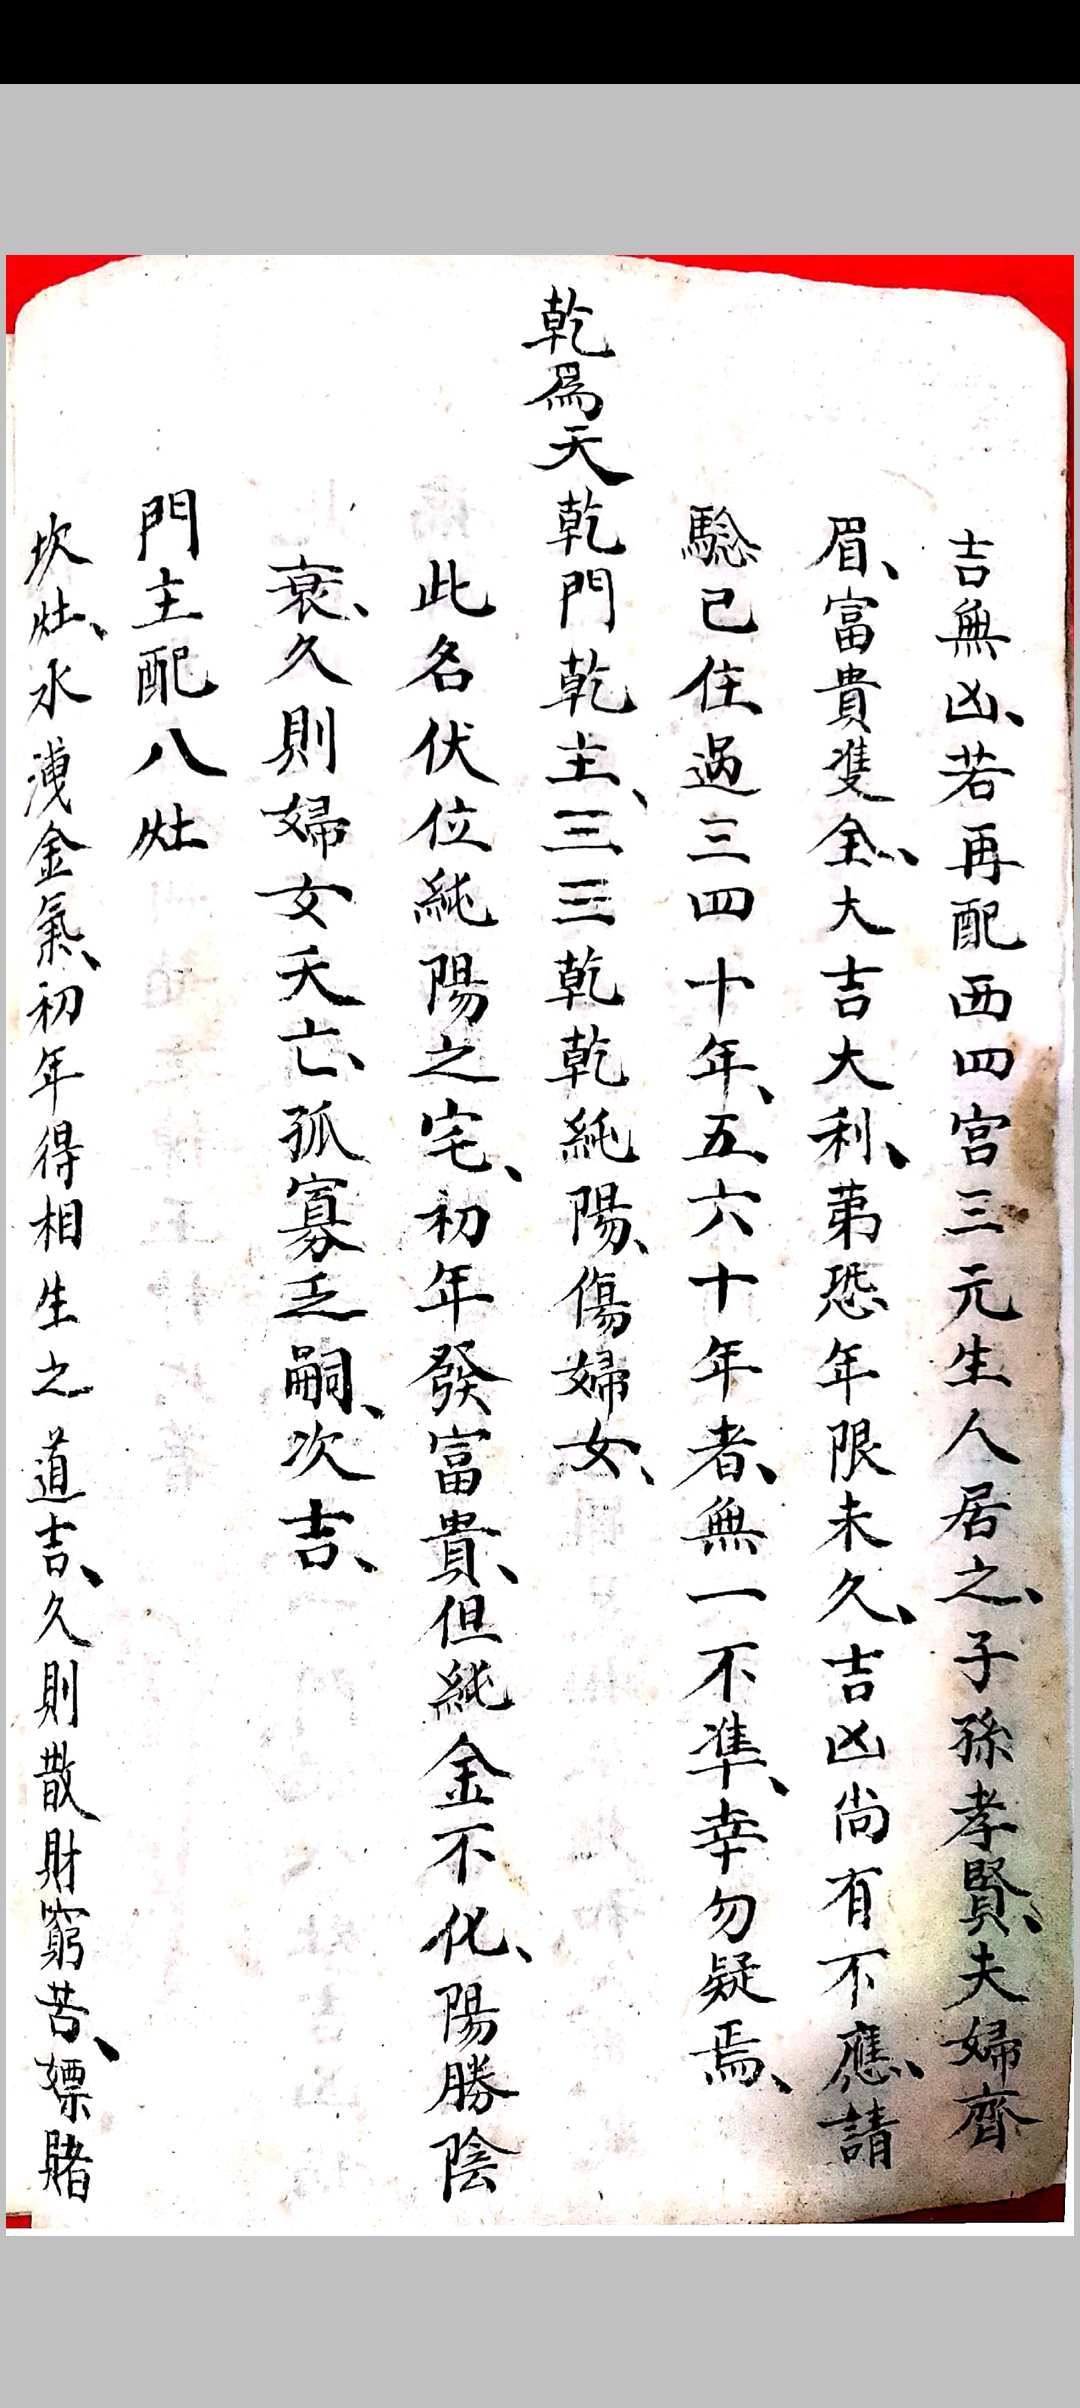 吉無凶、若再配西四宮三元生人居之、子孫孝賢、夫婦齊
眉、富貴隻全、大吉大利、苐恐年限未久、吉凶尚有不應、請
騐已住過三四十年、五六十年者、無一不準、幸勿疑焉、
乾爲天乾門乾主、☰☰乾乾純陽、傷婦女、
此名伏位純陽之宅、初年發富貴、但純金不化、陽勝陰
衰、久則婦女夭亡、孤寡乏嗣、次吉、
門主配八灶
坎灶、水洩金氣、初年得相生之道吉、久則散財窮苦、嫖賭